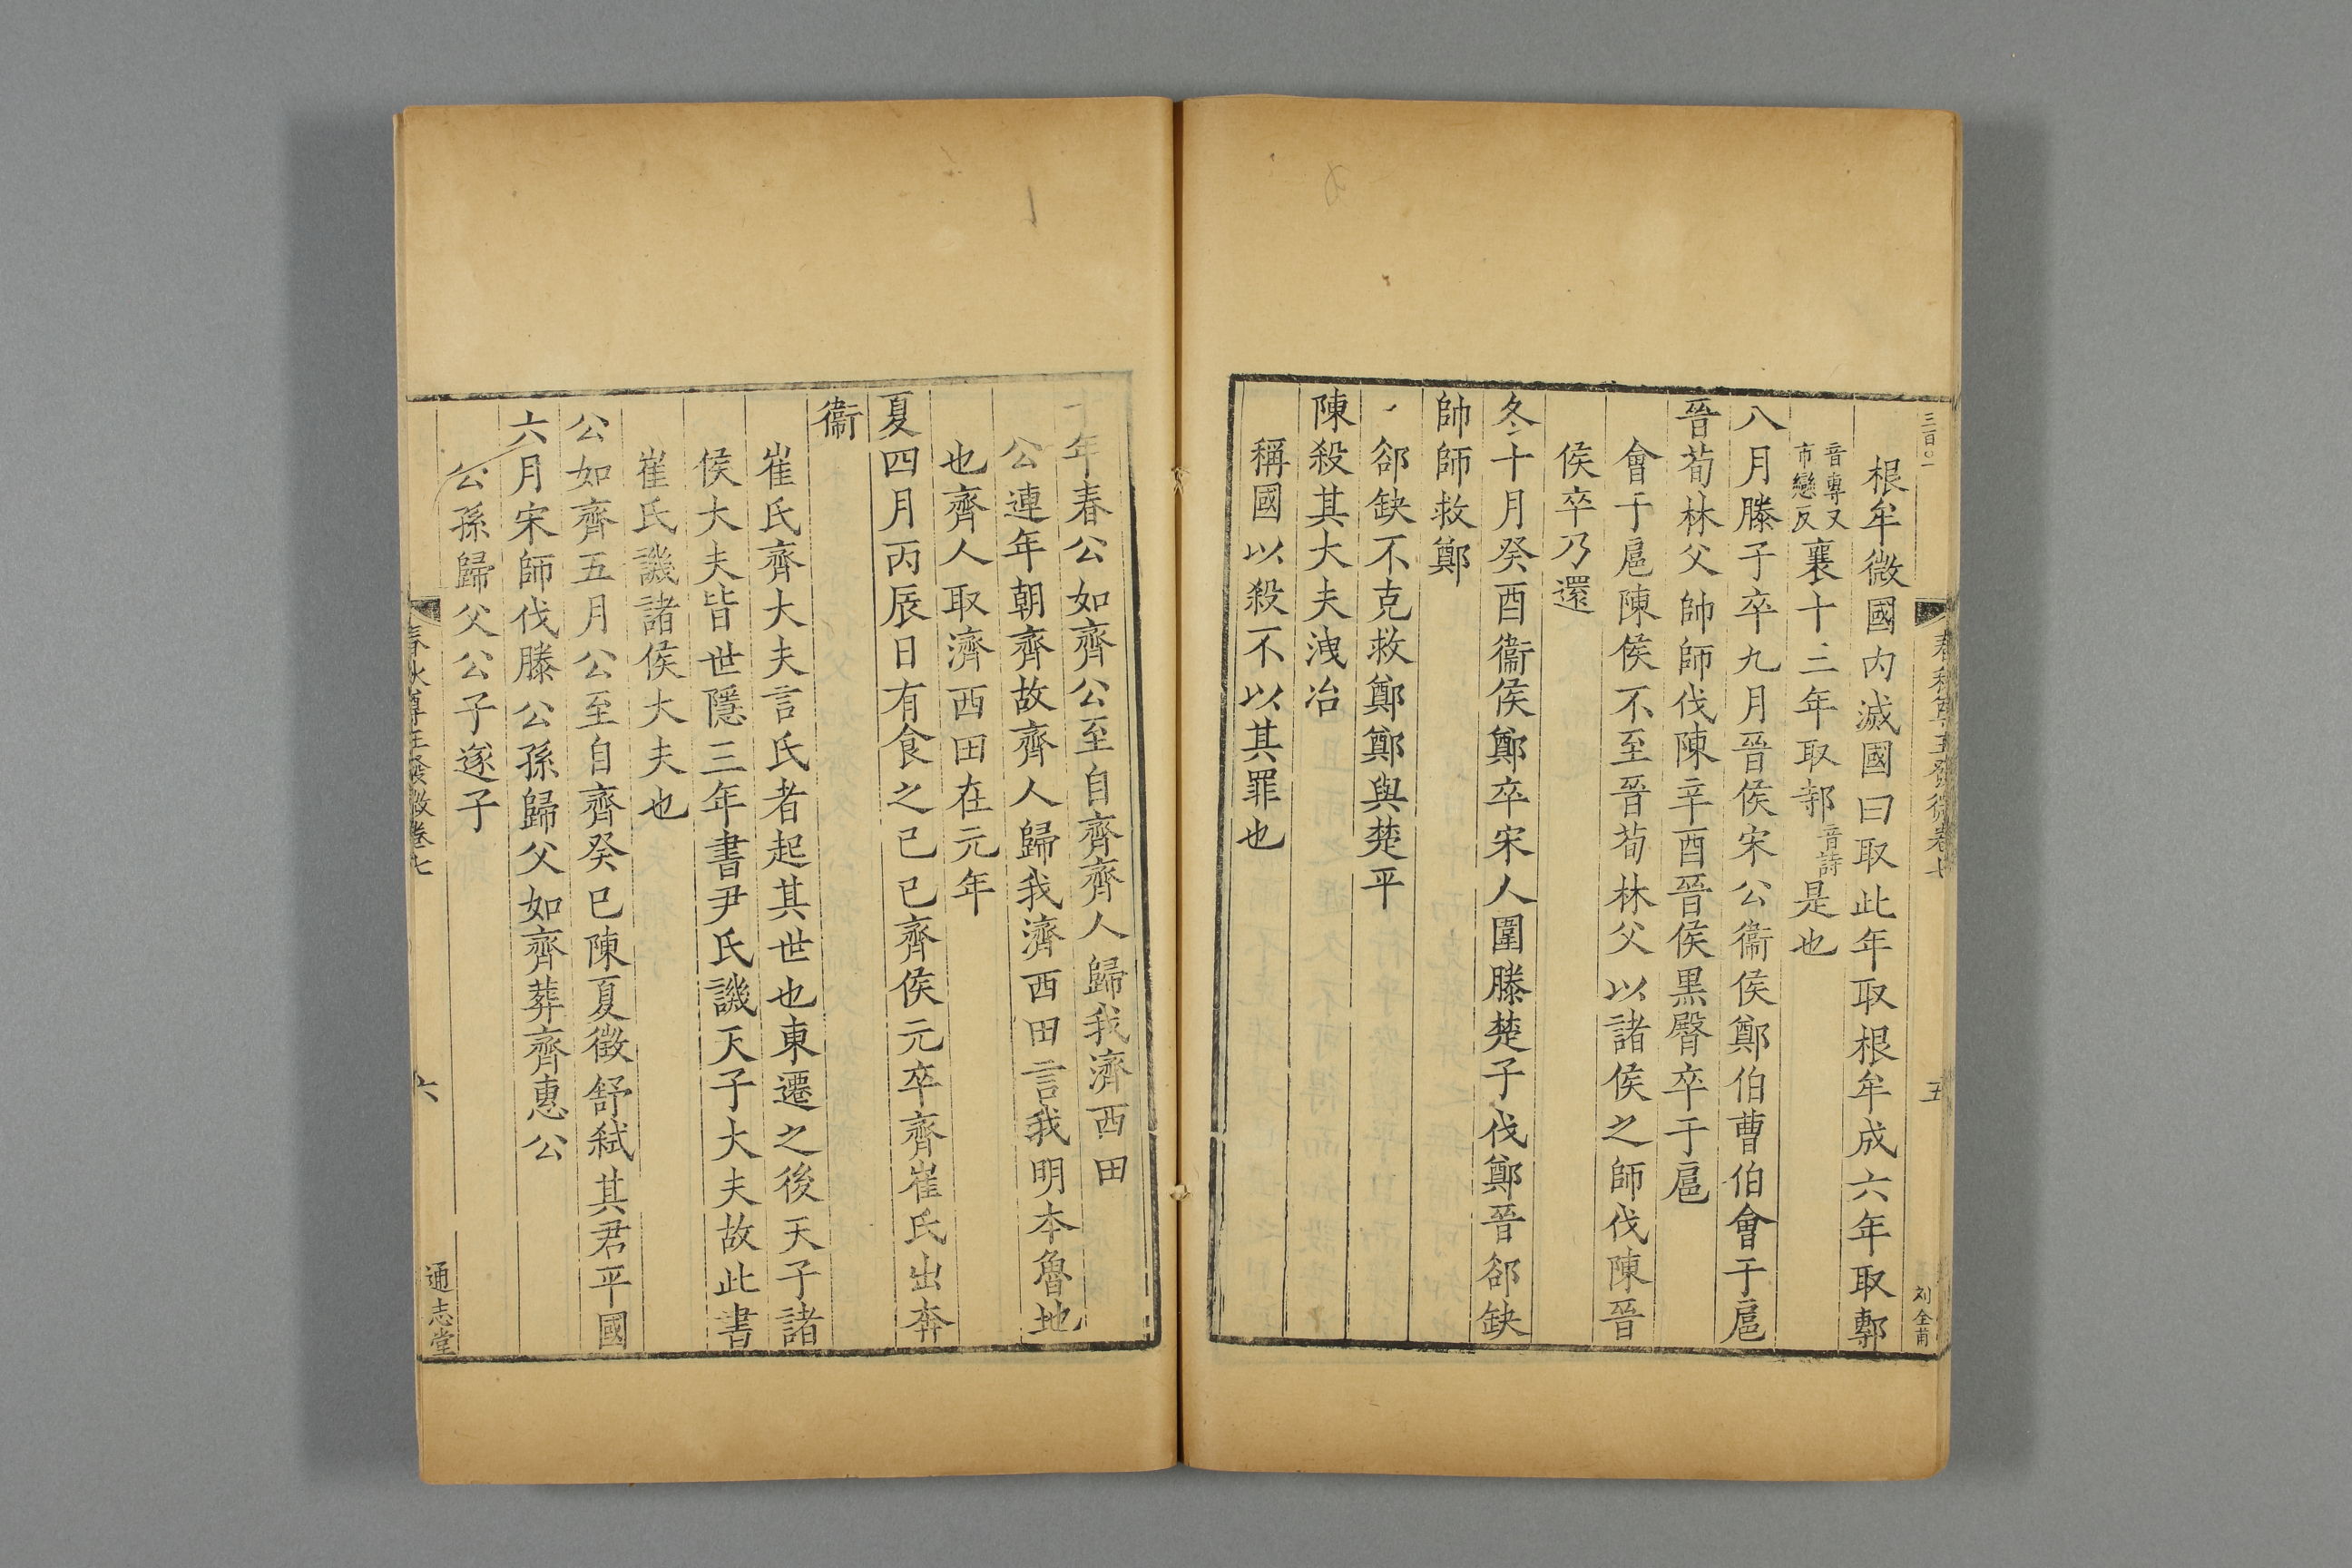 春秋尊王發微卷七
五
刘全甫
根牟微國內滅國曰取此年取根牟成六年取鄟
音專又市戀反襄十三年取邿音詩是也
八月滕子卒九月晉侯宋公衞侯鄭伯曹伯會于扈
晉荀林父帥師伐陳辛酉晉侯黒臀卒于扈
會于扈陳侯不至晉荀林父以諸侯之師伐陳晉
侯卒乃還
冬十月癸酉衞侯鄭卒宋人圍滕楚子伐鄭晉郤缺
帥師救鄭
郤缺不克救鄭鄭與楚平
陳殺其大夫洩冶
稱國以殺不以其罪也
年春公如齊公至自齊齊人歸我濟西田
公連年朝齊故齊人歸我濟西田言我明本魯地
也齊人取濟西田在元年
夏四月丙辰日有食之己巳齊侯元卒齊崔氏出奔
衞
崔氏齊大夫言氏者起其世也東遷之後天子諸
侯大夫皆世隱三年書尹氏譏天子大夫故此書
崔氏譏諸侯大夫也
公如齊五月公至自齊癸巳陳夏徵舒弑其君平國
六月宋師伐滕公孫歸父如齊葬齊惠公
公孫歸父公子遂子
春秋尊王發微卷七
六
通志堂